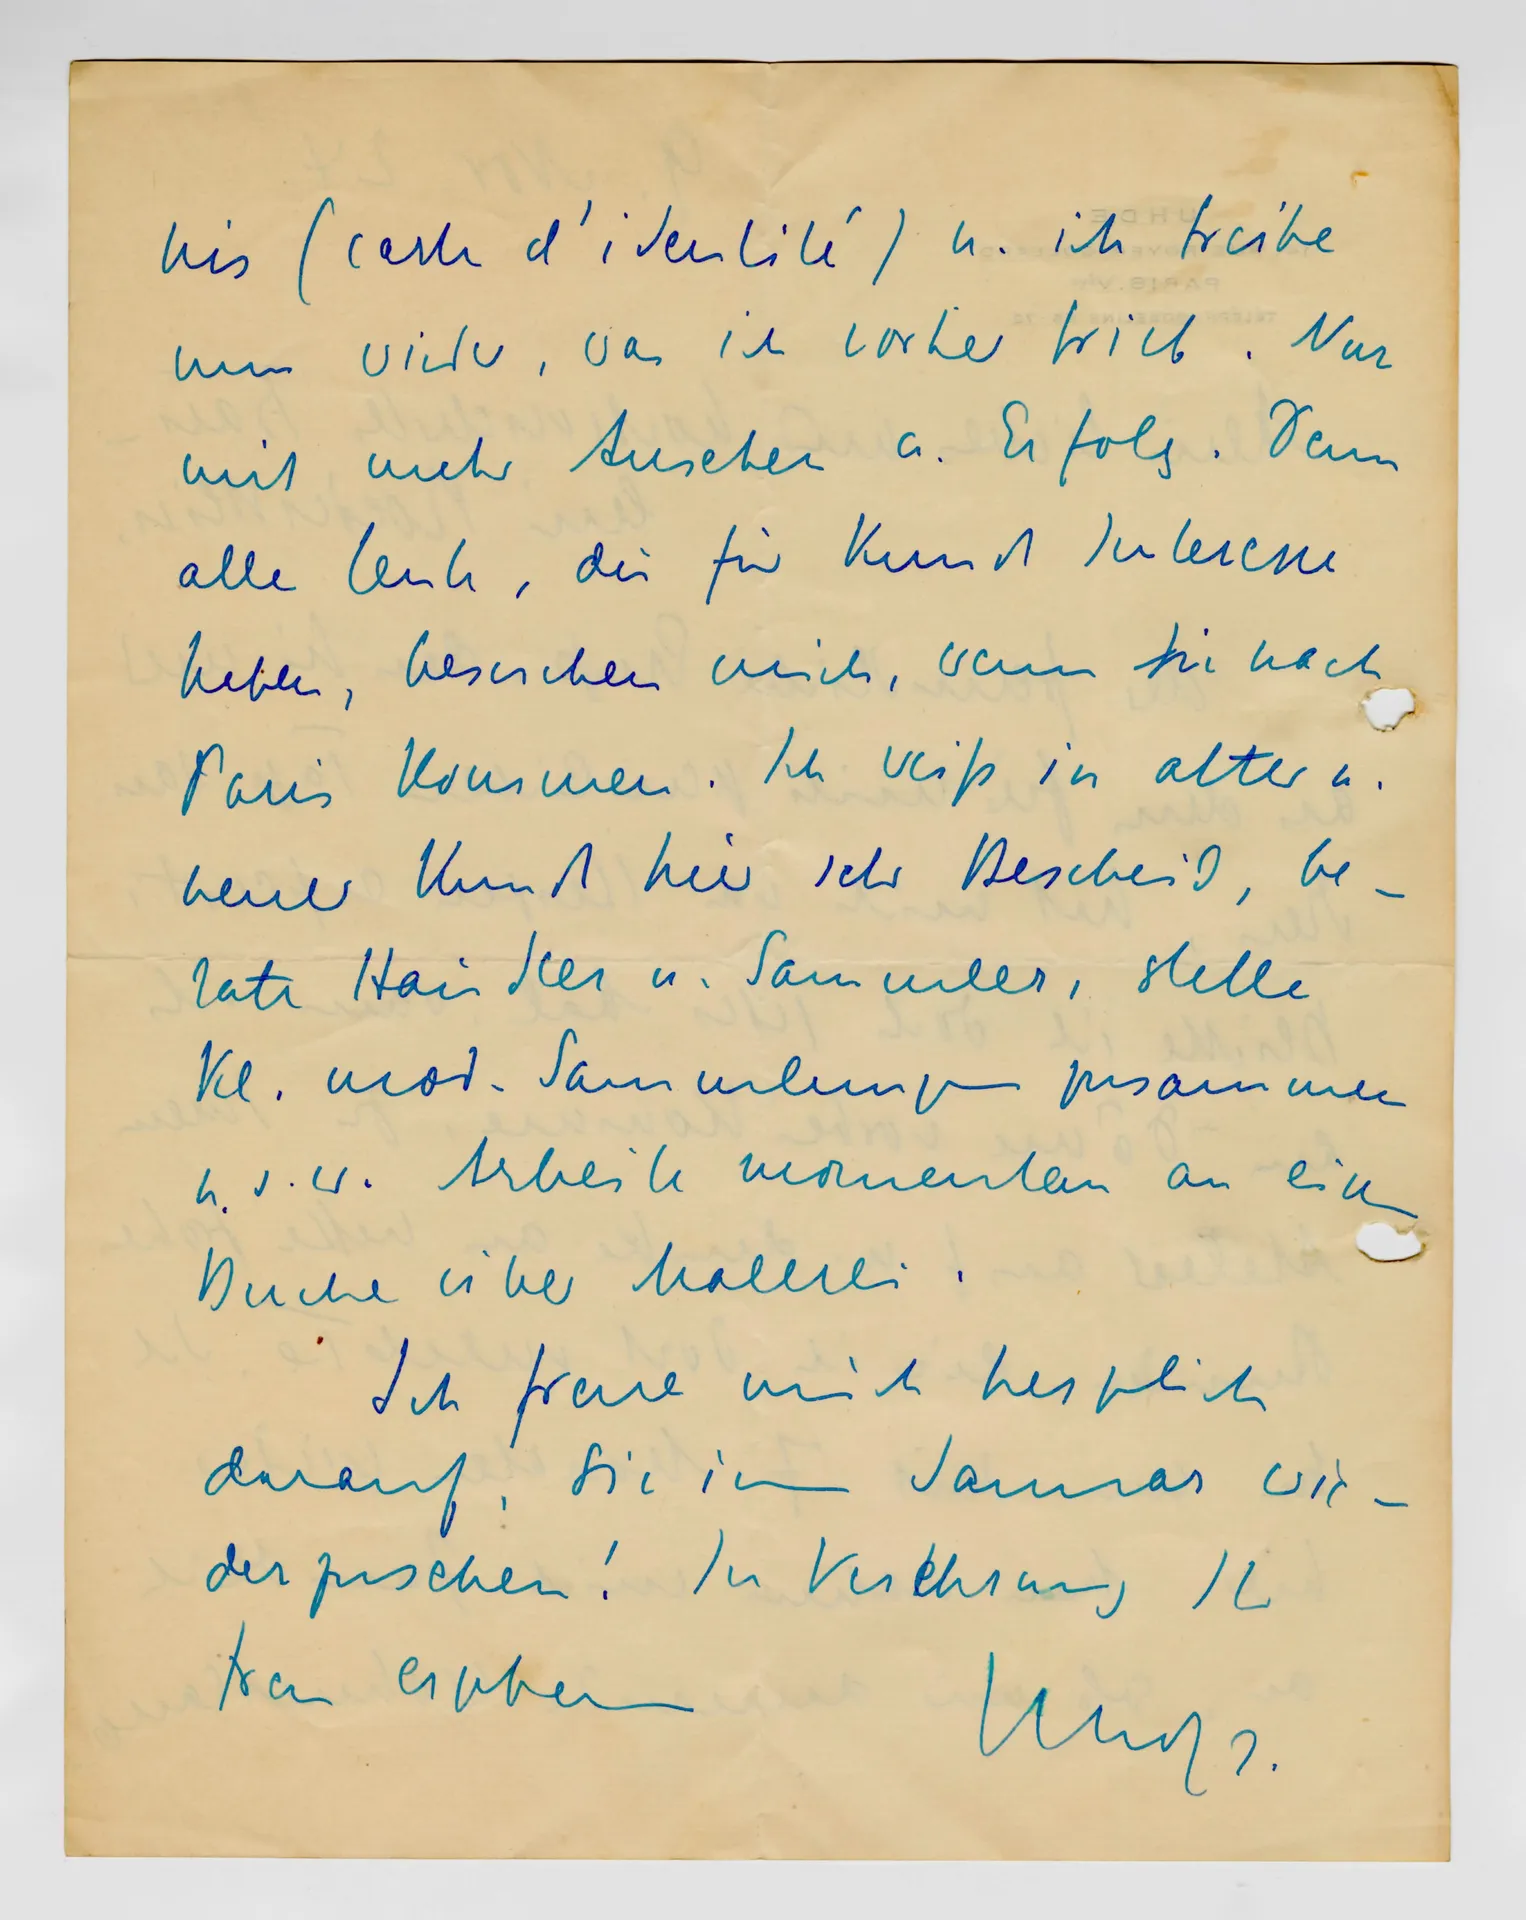 nis (carte d'identité) u. ich treibe
nun wieder, was ich vorher trieb. Nur
mit mehr Ansehen u. Erfolg. Denn
alle Leute, die für Kunst Interesse
haben, besuchen mich, wenn sie nach
Paris kommen. Ich weiß in alter u.
neuer Kunst hier sehr Bescheid, be-
rate Händler u. Sammler, stelle
kl. mod. Sammlungen zusammen
u.s.w. Arbeite momentan an einem
Buche über Malerei.
Ich freue mich herzlich
darauf, Sie im Januar wie-
derzusehen! In Verehrung Ihr
treu ergebener
Uhde
UHDE
PARIS. VIIe